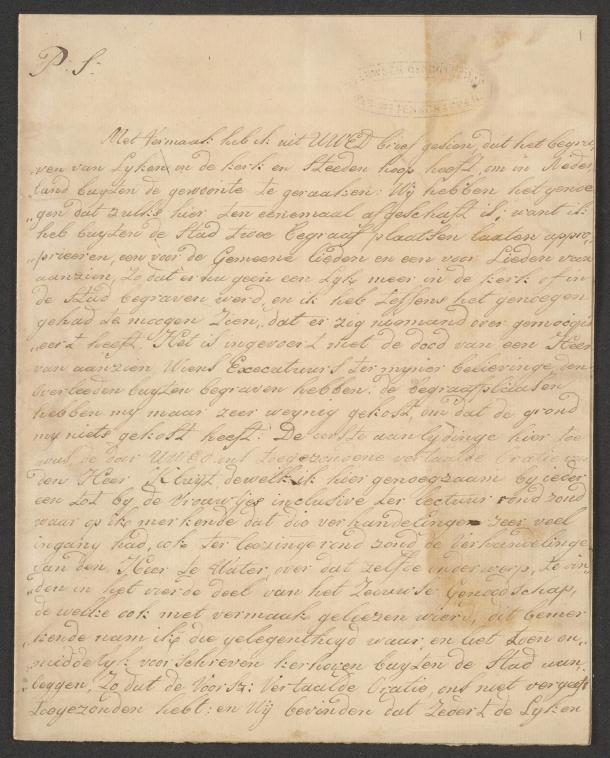 P: S:
1
Met Vermaak heb ik uit UWED brief gesien, dat het begra„
„ven van Lyken in de kerk en Steeden hoop heeft, om in Neder
land buyten de gewoonte te geraaken: Wij hebben het genoe„
„gen dat zulks hier ten eenemaal afgeschaft is, want ik
heb buyten de Stad twee Begraafplaatsen laaten appro„
„prieeren, een voor de Gemeene lieden en een voor Lieden van
aanzien, Zo dat er nu geen een Lyk meer in de kerk of in
de Stad begraven werd, en ik heb Teffens het genoegen
gehad te moogen Zien, dat er zig niemand over gemoveij
„eert heeft. Het is ingevoert met de dood van een Heer
van aanzien, Wiens Executeurs ter mijner believinge, den
overleeden buyten begraven hebben: de Begraafplaatsen
hebben my maar zeer weynig gekost, om dat de grond
my niets gekost heeft: De eerste aanlydinge hier toe
was, de door UWED ons toegezondene vertaalde Oratie van
den Heer Kluyt, dewelk ik hier genoegzaam by ieder
een tot by de Vrouwtjes inclusive ter lectuur rond zond
waar op ik merkende dat die verhandelinge zeer veel
ingang had, ook ter leezinge rond zond de Verhandelinge
van den Heer Te Water, over dat zelfde onderwerp, te vin„
„den in het vierde deel van het Zeeuwse Genoodschap,
de welke ook met vermaak geleezen wierd, dit bemer„
kende nam ik die gelegentheyd waar en liet Toen on„
„middelyk voorschreven kerkhoven buyten de Stad aan„
leggen, Zo dat de Voorsz: Vertaalde Oratie, ons niet vergeefs
toegezonden hebt: en Wij bevinden dat Zedert de Lyken